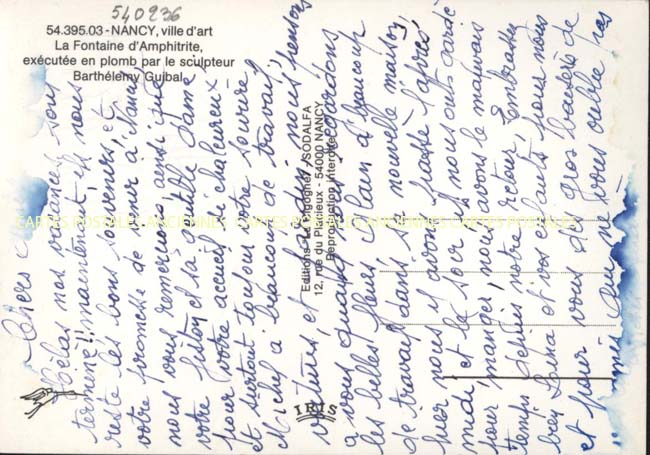 540236
54.395.03 - NANCY, ville d'art
La Fontaine d'Amphitrite,
exécutée en plomb par le sculpteur
Barthélemy Guibal.
Editions "La Cigogne", SODALFA
12, rue du Placieux - 54000 NANCY
Reproduction interdite
IRIS
CARTES POSTALES ANCIENNES CARTES POSTALES ANCIENNES CARTES POSTALES
Chers
Hélas nos vacances sont
terminé!! maintenant il nous
reste les bons souvenirs et
votre promesse de venir à Nancy
nous vous remercions ainsi que
votre fiston et sa gentille dame
pour votre accueil si chaleureux
et surtout toujours votre sourire
Michel a beaucoup de travail,
voitures, et nous pensons
à vous quand nous regardons
les belles fleurs. Alain a beaucoup
de travail dans sa nouvelle maison,
hier nous y avons passé l'après
midi et le soir il nous ont gardé
pour manger, nous avons le mauvais
temps depuis notre retour, Embrassez
bien et vos enfants pour nous
et pour vous de gros baisers de
amis qui ne vous oublie pas